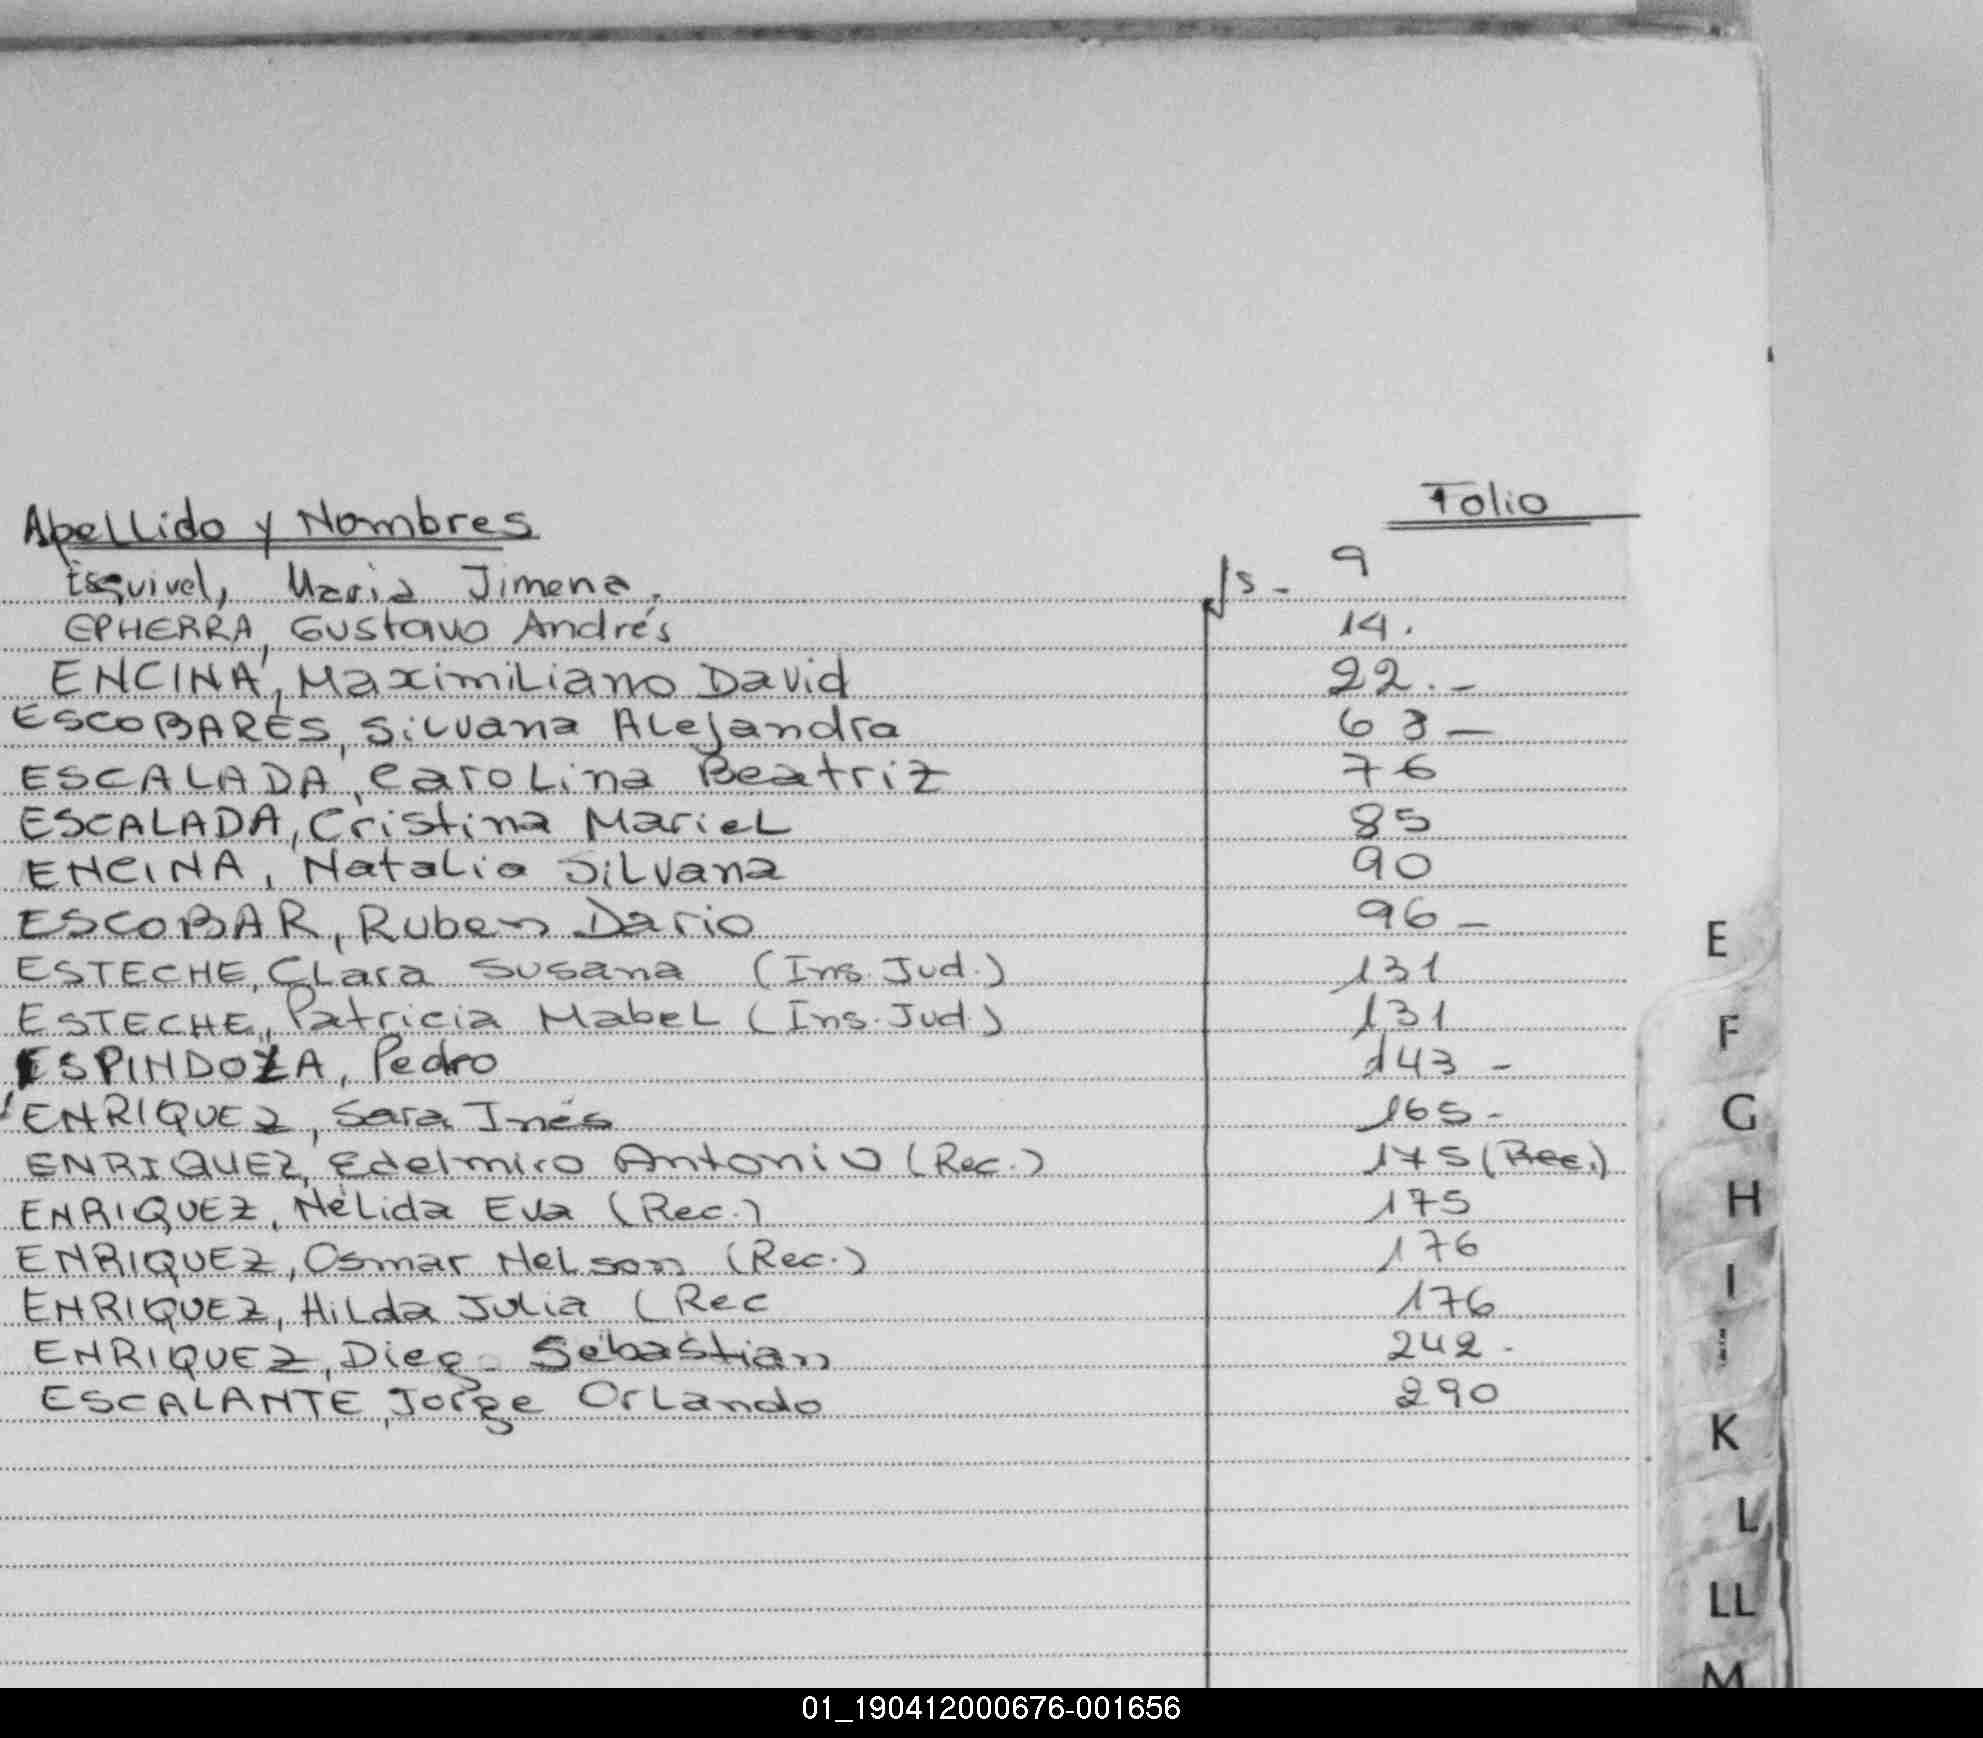 Apellido y Nombres Folio
Esquivel, Maria Jimena. fs - 9
EPHERRA, Gustavo Andrés 14.
ENCINA, Maximiliano David 22.-
ESCOBARES, Silvana Alejandra 63 -
ESCALADA, Carolina Beatriz 76
ESCALADA, Cristina Mariel 85
ENCINA, Natalia Silvana 90
ESCOBAR, Ruben Dario 96 -
ESTECHE, Clara Susana (Ins. Jud.) 131
ESTECHE, Patricia Mabel (Ins. Jud.) 131
ESPINDOLA, Pedro 143 -
ENRIQUEZ, Sara Inés 165 -
ENRIQUEZ, Edelmiro Antonio (Rec.) 175 (Rec.)
ENRIQUEZ, Nélida Eva (Rec.) 175
ENRIQUEZ, Osmar Nelson (Rec.) 176
ENRIQUEZ, Hilda Julia (Rec 176
ENRIQUEZ, Diego Sebastian 242 -
ESCALANTE, Jorge Orlando 290
E
F
G
H
I
K
L
LL
M
01_190412000676-001656